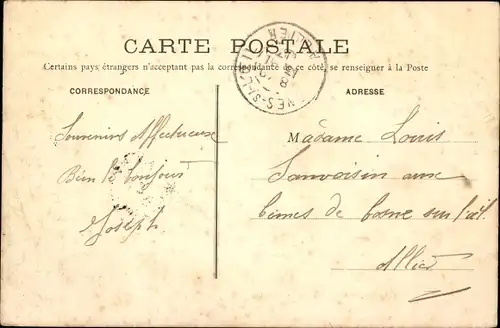 CARTE POSTALE
Certains pays étrangers n'acceptant pas la correspondance de ce côté, se renseigner à la Poste
CORRESPONDANCE
ADRESSE
Souvenirs Affectueuse
Bien le bonjour
Joseph
Madame Louis
Sauvoisin aux
de Cosne sur l'œil
Allier
ALLIER